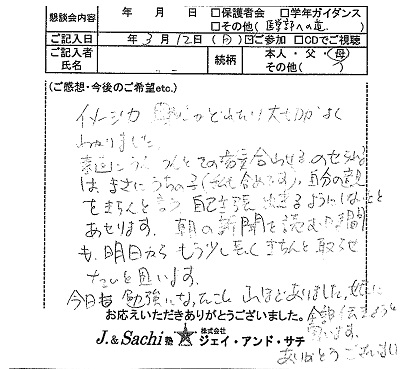 懇談会内容 年 月 日 □保護者会 □学年ガイダンス
□その他(医学部への道)
ご記入日 年 3月12日(日) ☑ご参加 □CDでご視聴
ご記入者氏名 続柄 本人・父・母
その他( )
(ご感想・今後のご希望etc.)
イメージ力 がどれだけ大切か よく
わかりました。
は、まさにうちの子(私も含めてです)、自分の意見
をきちんと言う 自己主張 出来るようにしないと
あせります。朝の新聞を読む時間
も、明日から もう少し長く きちんと 取らせ
たいと思います。
今日も 勉強になったこと 山ほどありました。娘に
全部伝えようと
思います。
ありがとうございました
お応えいただきありがとうございました。
J.&Sachi塾 株式会社 ジェイ・アンド・サチ